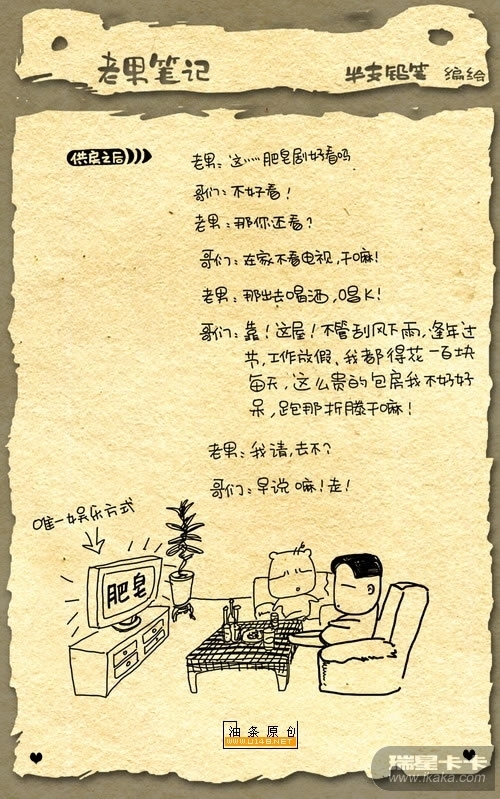 老男笔记
半支铅笔 编绘
供房之后)))
老男:这……肥皂剧好看吗
哥们:不好看!
老男:那你还看?
哥们:在家不看电视,干嘛!
老男:那出去喝酒,唱K!
哥们:靠!这屋!不管刮风下雨,逢年过
节,工作放假、我都得花一百块
每天,这么贵的包房我不好好
呆,跑那折腾干嘛!
老男:我请,去不?
哥们:早说嘛!走!
唯一娱乐方式
肥皂
油条原创
WWW.U148.NET
瑞星卡卡
www.ikaka.com